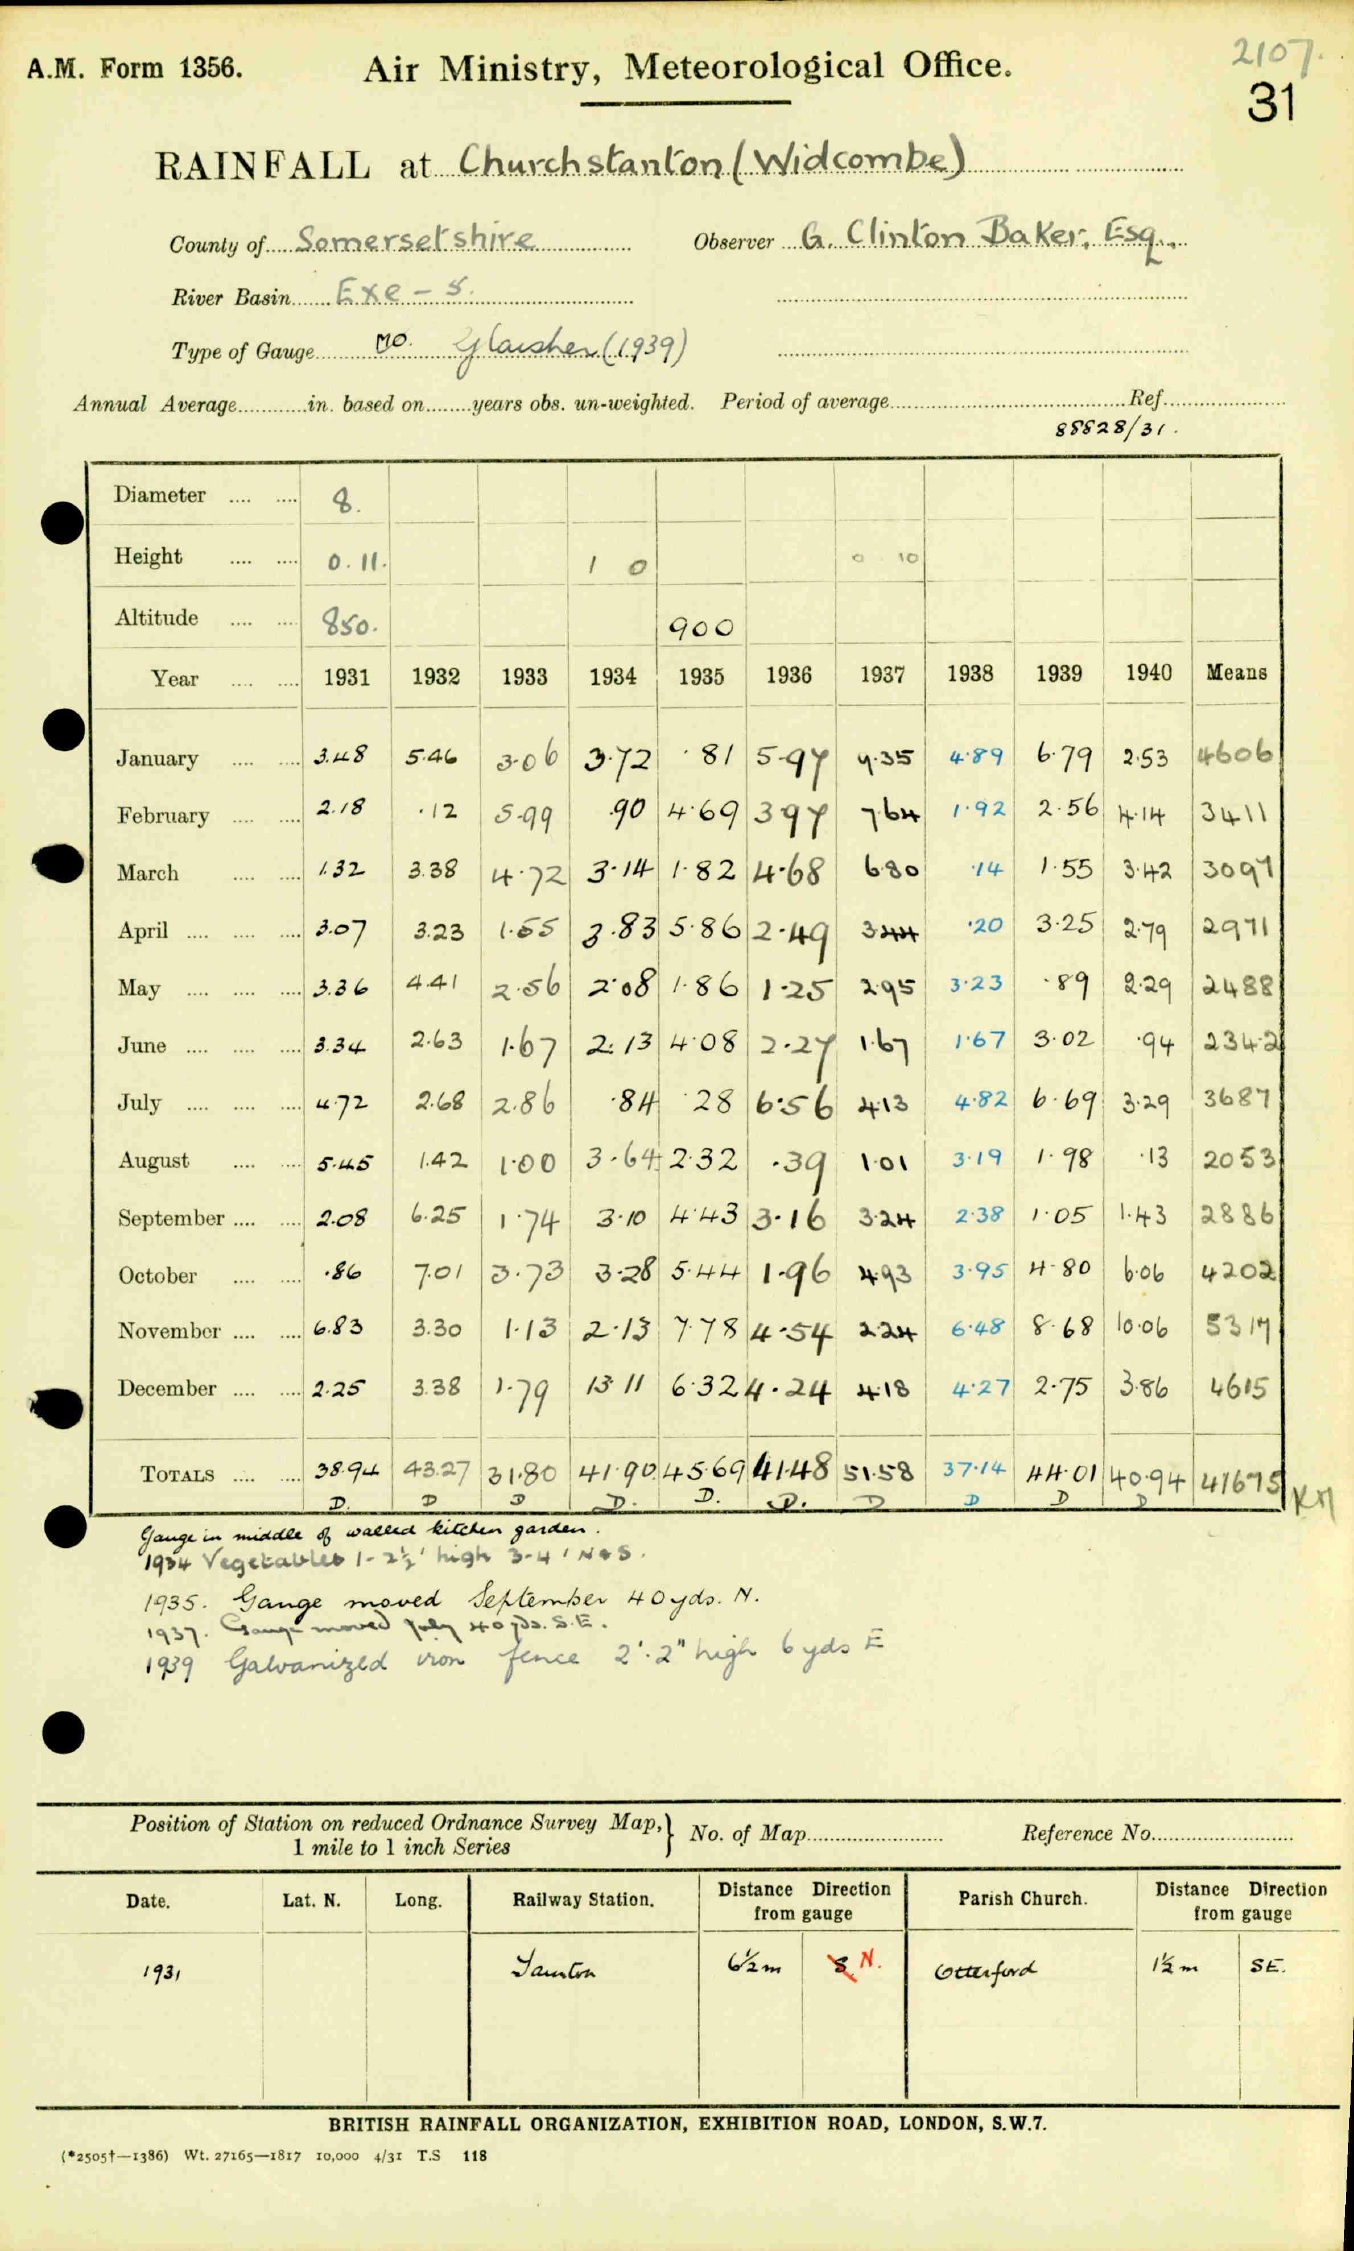 2107.
A.M. Form 1356. Air Ministry, Meteorological Office.
31
RAINFALL at Churchstanton (Widcombe)
County of Somersetshire Observer G. Clinton Baker, Esq.,
River Basin Exe - 5.
Type of Gauge MO. Glaisher (1939)
Annual Average............in. based on........years obs. un-weighted. Period of average............Ref............
88828/31.
Diameter .... .... 8.
Height .... .... 0.11. 1 0 0 10
Altitude .... .... 850. 900
Year .... .... 1931 1932 1933 1934 1935 1936 1937 1938 1939 1940 Means
January .... .... 3.48 5.46 3.06 3.72 .81 5.97 9.35 4.89 6.79 2.53 4606
February .... .... 2.18 .12 5.99 .90 4.69 3.97 7.64 1.92 2.56 4.14 3411
March .... .... 1.32 3.38 4.72 3.14 1.82 4.68 6.80 .14 1.55 3.42 3097
April .... .... .... 3.07 3.23 1.55 3.83 5.86 2.49 3.44 .20 3.25 2.79 2971
May .... .... .... 3.36 4.41 2.56 2.08 1.86 1.25 2.95 3.23 .89 2.29 2488
June .... .... .... 3.34 2.63 1.67 2.13 4.08 2.27 1.67 1.67 3.02 .94 2342
July .... .... .... 4.72 2.68 2.86 .84 .28 6.56 4.13 4.82 6.69 3.29 3687
August .... .... 5.45 1.42 1.00 3.64 2.32 .39 1.01 3.19 1.98 .13 2053
September .... .... 2.08 6.25 1.74 3.10 4.43 3.16 3.24 2.38 1.05 1.43 2886
October .... .... .86 7.01 3.73 3.28 5.44 1.96 4.93 3.95 4.80 6.06 4202
November .... .... 6.83 3.30 1.13 2.13 7.78 4.54 2.24 6.48 8.68 10.06 5317
December .... .... 2.25 3.38 1.79 13.11 6.32 4.24 4.18 4.27 2.75 3.86 4615
TOTALS .... .... 38.94 43.27 31.80 41.90 45.69 41.48 51.58 37.14 44.01 40.94 41675
D. D D D. D. D. D D D D
Gauge in middle of walled kitchen garden.
1934 Vegetables 1-2½' high 3-4' N & S.
1935. Gauge moved September 40 yds. N.
1937. Gauge moved July 40 yds. S.E.
1939 Galvanized iron fence 2'.2" high 6 yds E
Position of Station on reduced Ordnance Survey Map, 1 mile to 1 inch Series } No. of Map............ Reference No............
Date. Lat. N. Long. Railway Station. Distance Direction from gauge Parish Church. Distance Direction from gauge
1931 Taunton 6½ m S N. Otterford 1½ m SE.
BRITISH RAINFALL ORGANIZATION, EXHIBITION ROAD, LONDON, S.W.7.
(*2505†—1386) Wt. 27165—1817 10,000 4/31 T.S 118